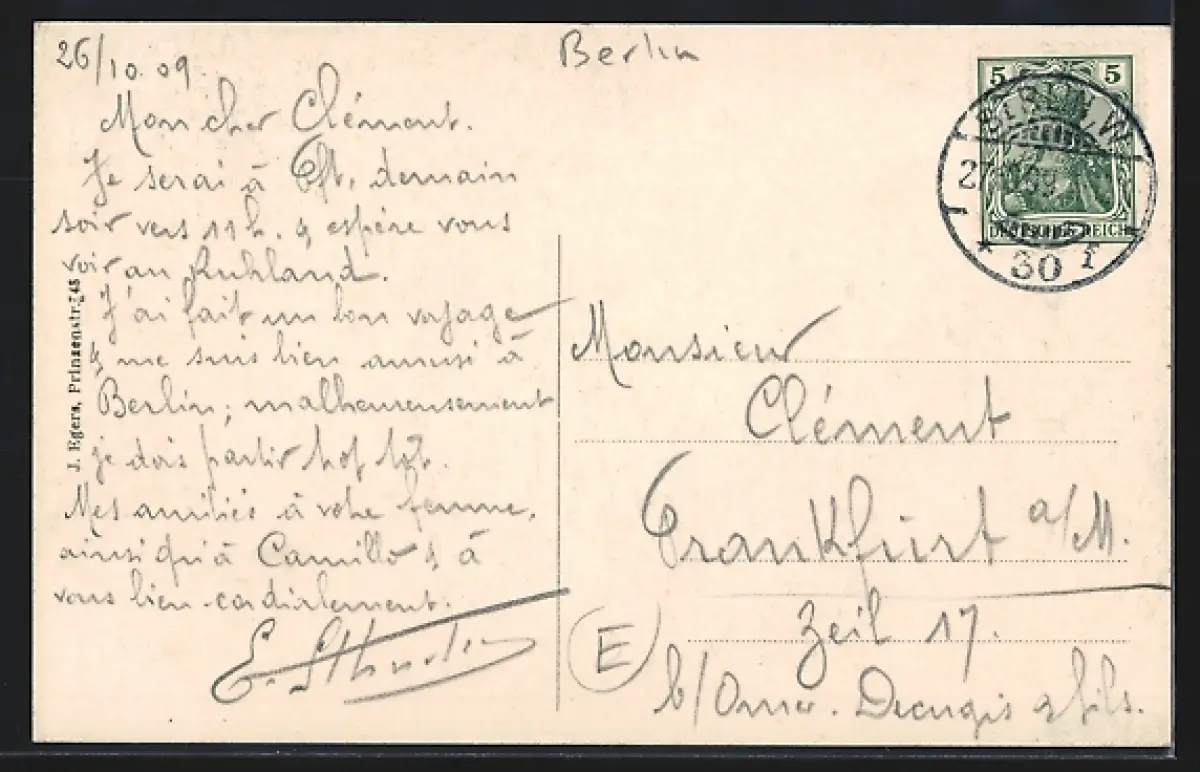 26/10.09.
Mon cher Clément.
Je serai à Fft, demain
soir vers 11h. & espère vous
voir au Ruhland.
J'ai fait un bon voyage
& me suis bien amusé à
Berlin; malheureusement
je dois partir tôt.
Mes amitiés à votre femme,
ainsi qu'à Camillo & à
vous bien cordialement.
E.
J. Egers, Prinzenstr. 45
Berlin
5 5
DEUTSCHES REICH
BERLIN W.
27 09
* 30 f *
Monsieur
Clément
Frankfurt a/M.
Zeil 17.
b/Omer. Decugis & fils.
E